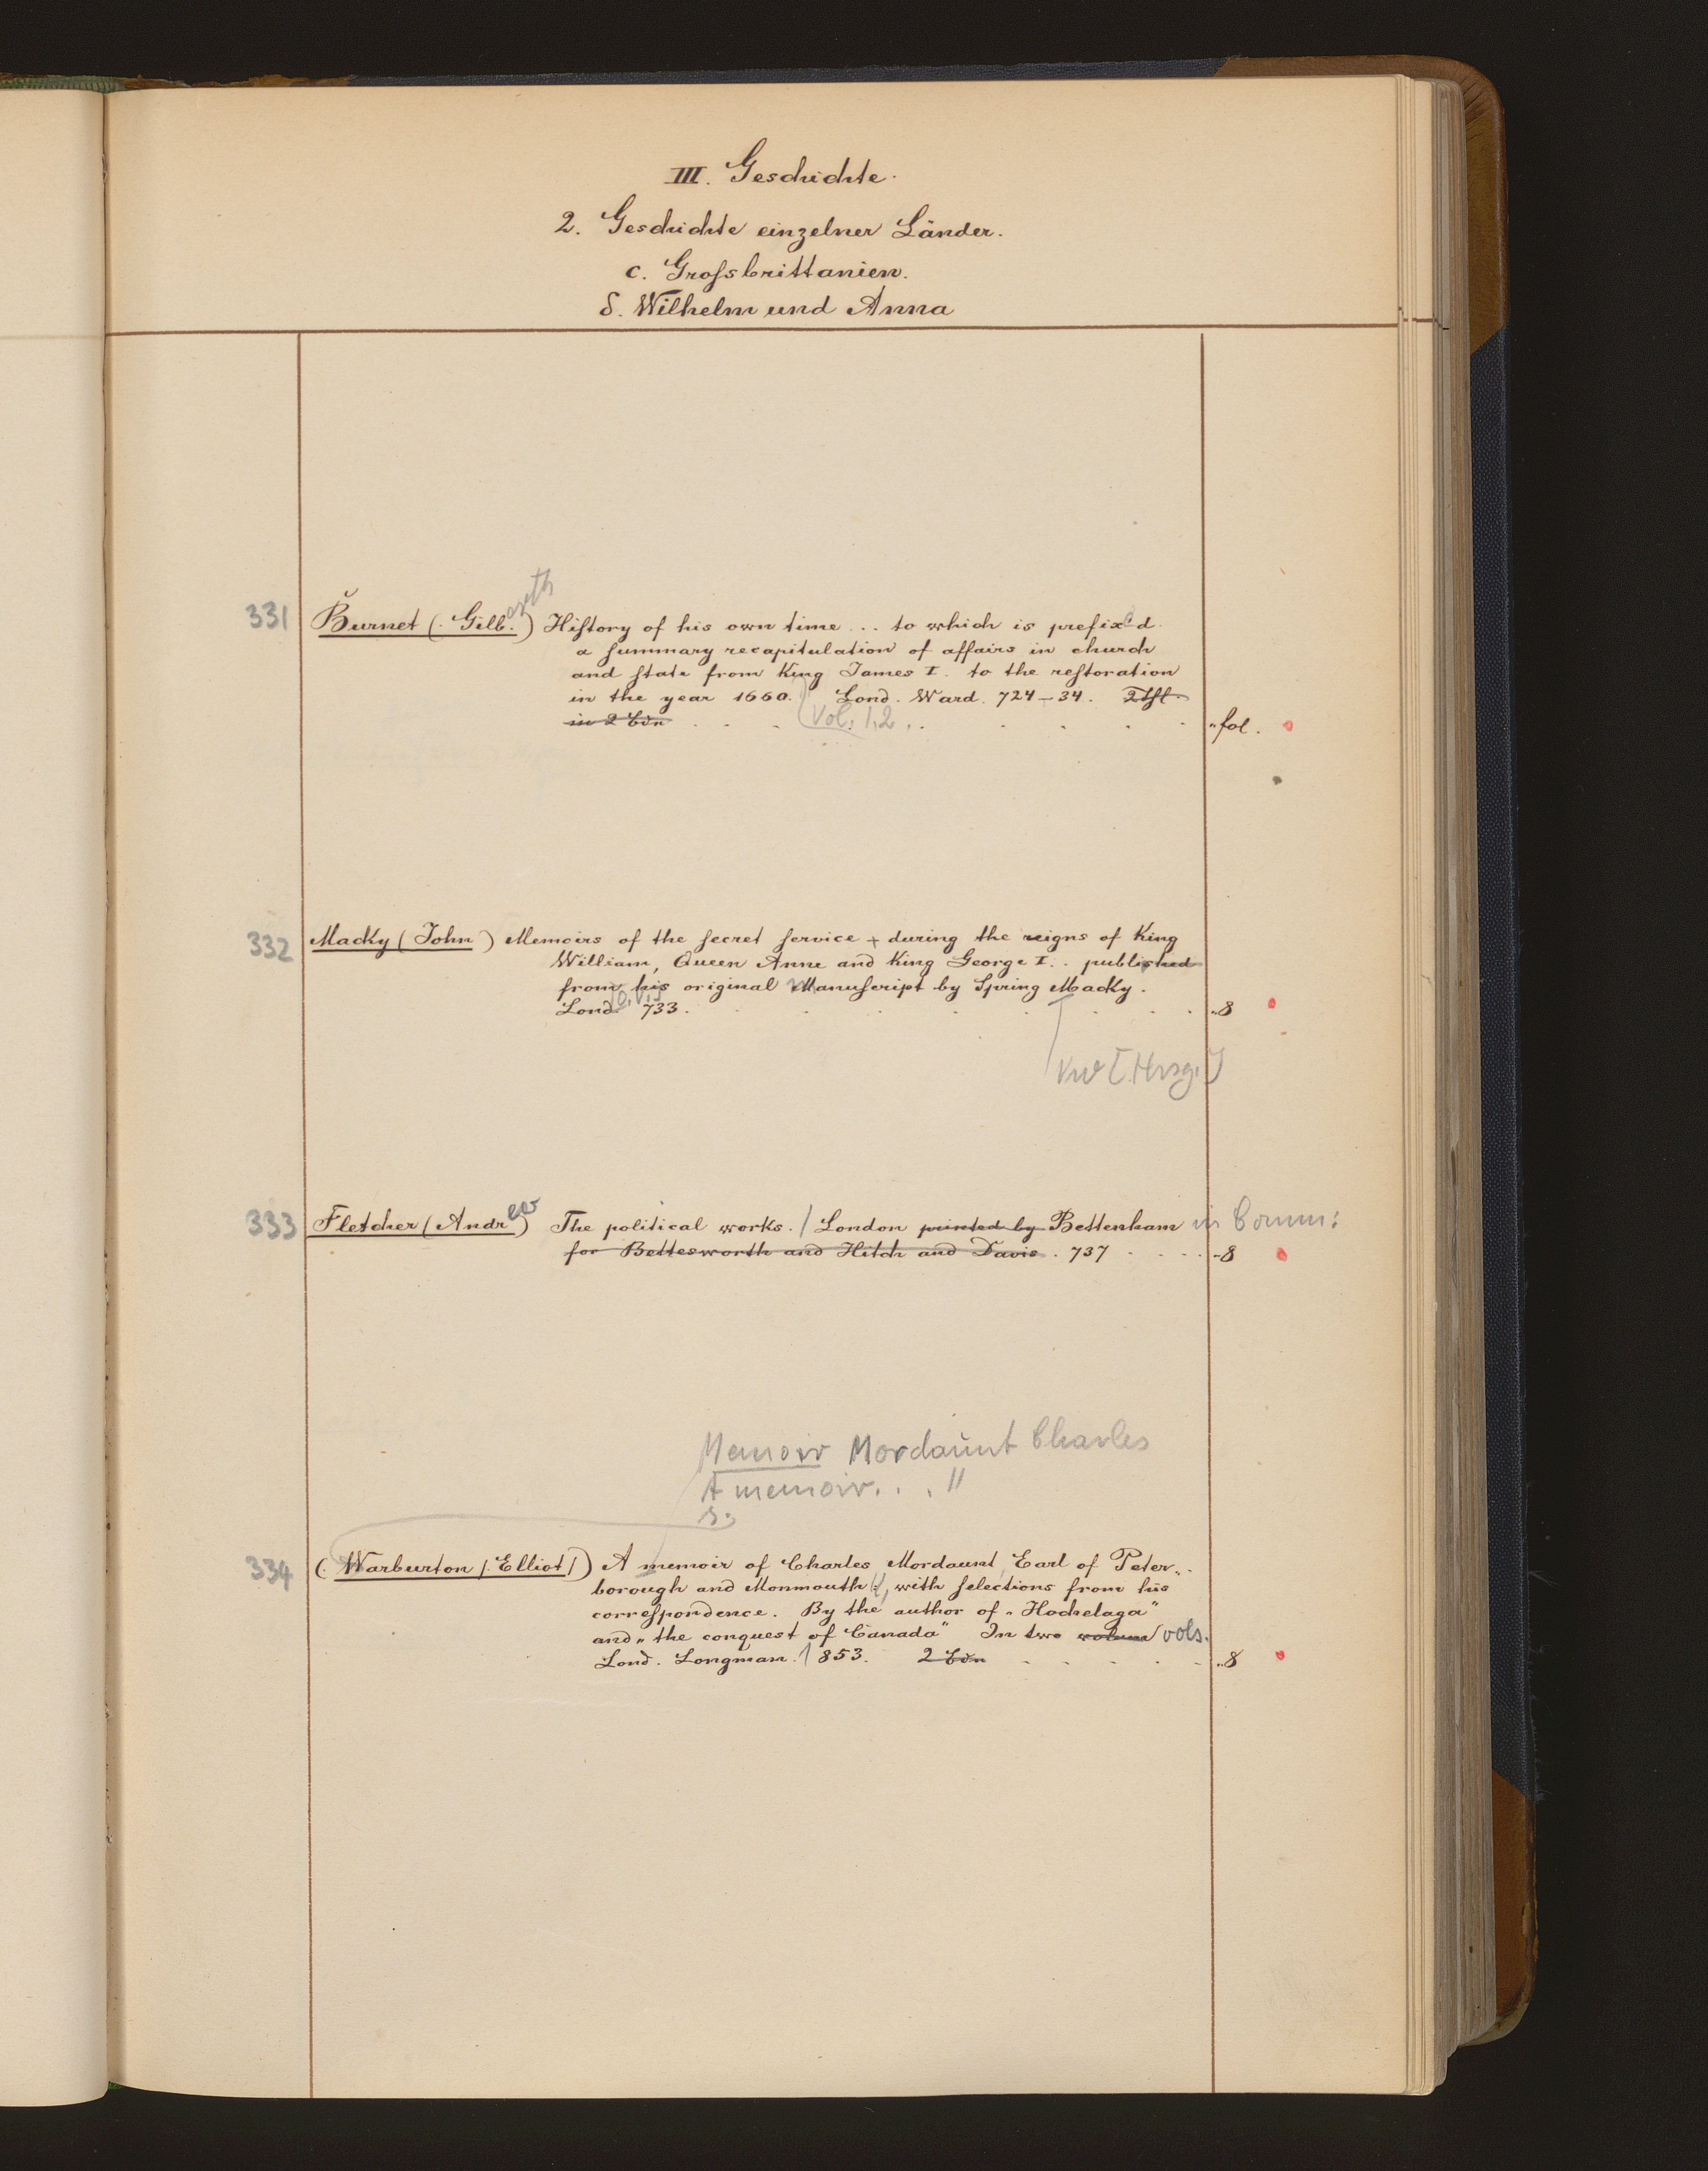 III. Geschichte.
2. Geschichte einzelner Länder.
c. Grossbrittanien.
δ. Wilhelm und Anna
331 Burnet (. Gilb.) History of his own time ... to which is prefix'd
a summary recapitulation of affairs in church
and state from King James I. to the restoration
in the year 1660. Lond. Ward. 724–34. 2 Tle
in 2 Bdn (Vol. 1.2. „fol.
332 Macky (John) Memoirs of the secret service + during the reigns of King
William, Queen Anne and King George I.. published
from his original Manuscript by Spring Macky.
Lond. 733. „8
Vw [Hrsg.]
333 Fletcher (Andrew) The political works. / London printed by Bettenham in Comm:
for Bettesworth and Hitch and Davis. 737 -8
Memoir Mordaunt Charles
A memoir. . . "
s.
334 (. Warburton /. Elliot /) A memoir of Charles Mordaunt, Earl of Peter„
borough and Monmouth, with selections from his
correspondence. By the author of „Hochelaga"
and „the conquest of Canada" In two volum vols.
Lond. Longman. 1853. 2 Bdn „8